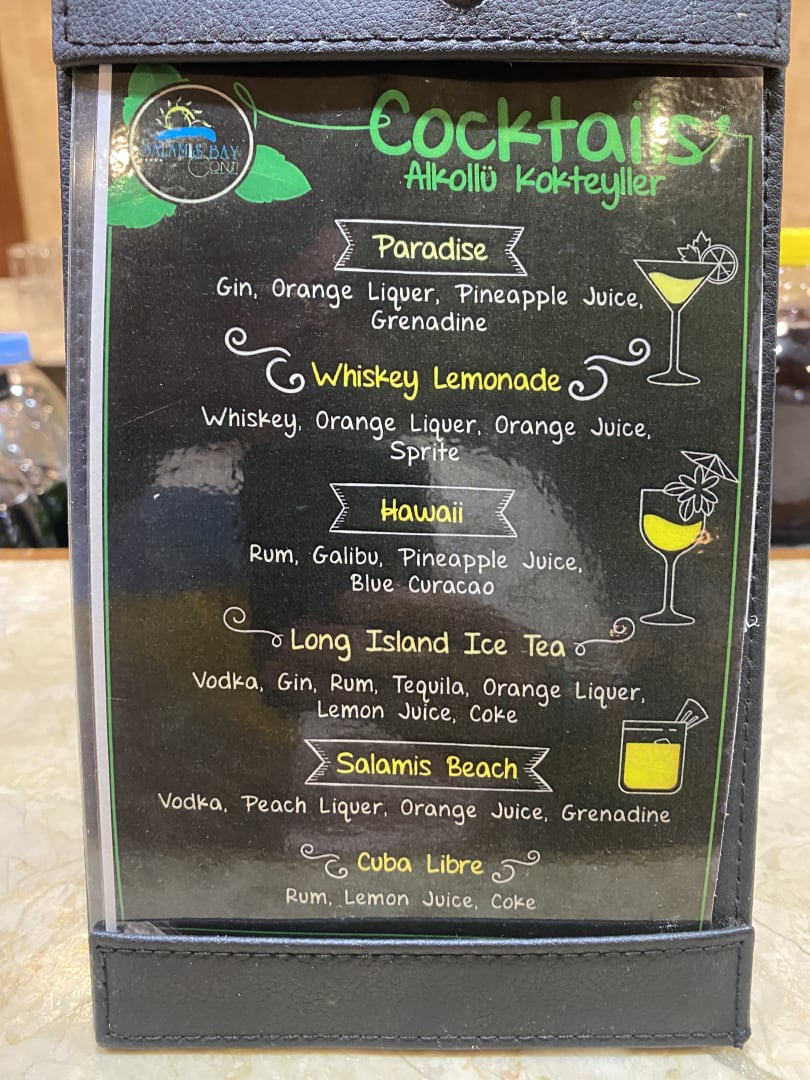 SALAMIS BAY
CONTI
Cocktails
Alkollü Kokteyller
Paradise
Gin, Orange Liquer, Pineapple Juice,
Grenadine
Whiskey Lemonade
Whiskey, Orange Liquer, Orange Juice,
Sprite
Hawaii
Rum, Galibu, Pineapple Juice,
Blue Curacao
Long Island Ice Tea
Vodka, Gin, Rum, Tequila, Orange Liquer,
Lemon Juice, Coke
Salamis Beach
Vodka, Peach Liquer, Orange Juice, Grenadine
Cuba Libre
Rum, Lemon Juice, Coke